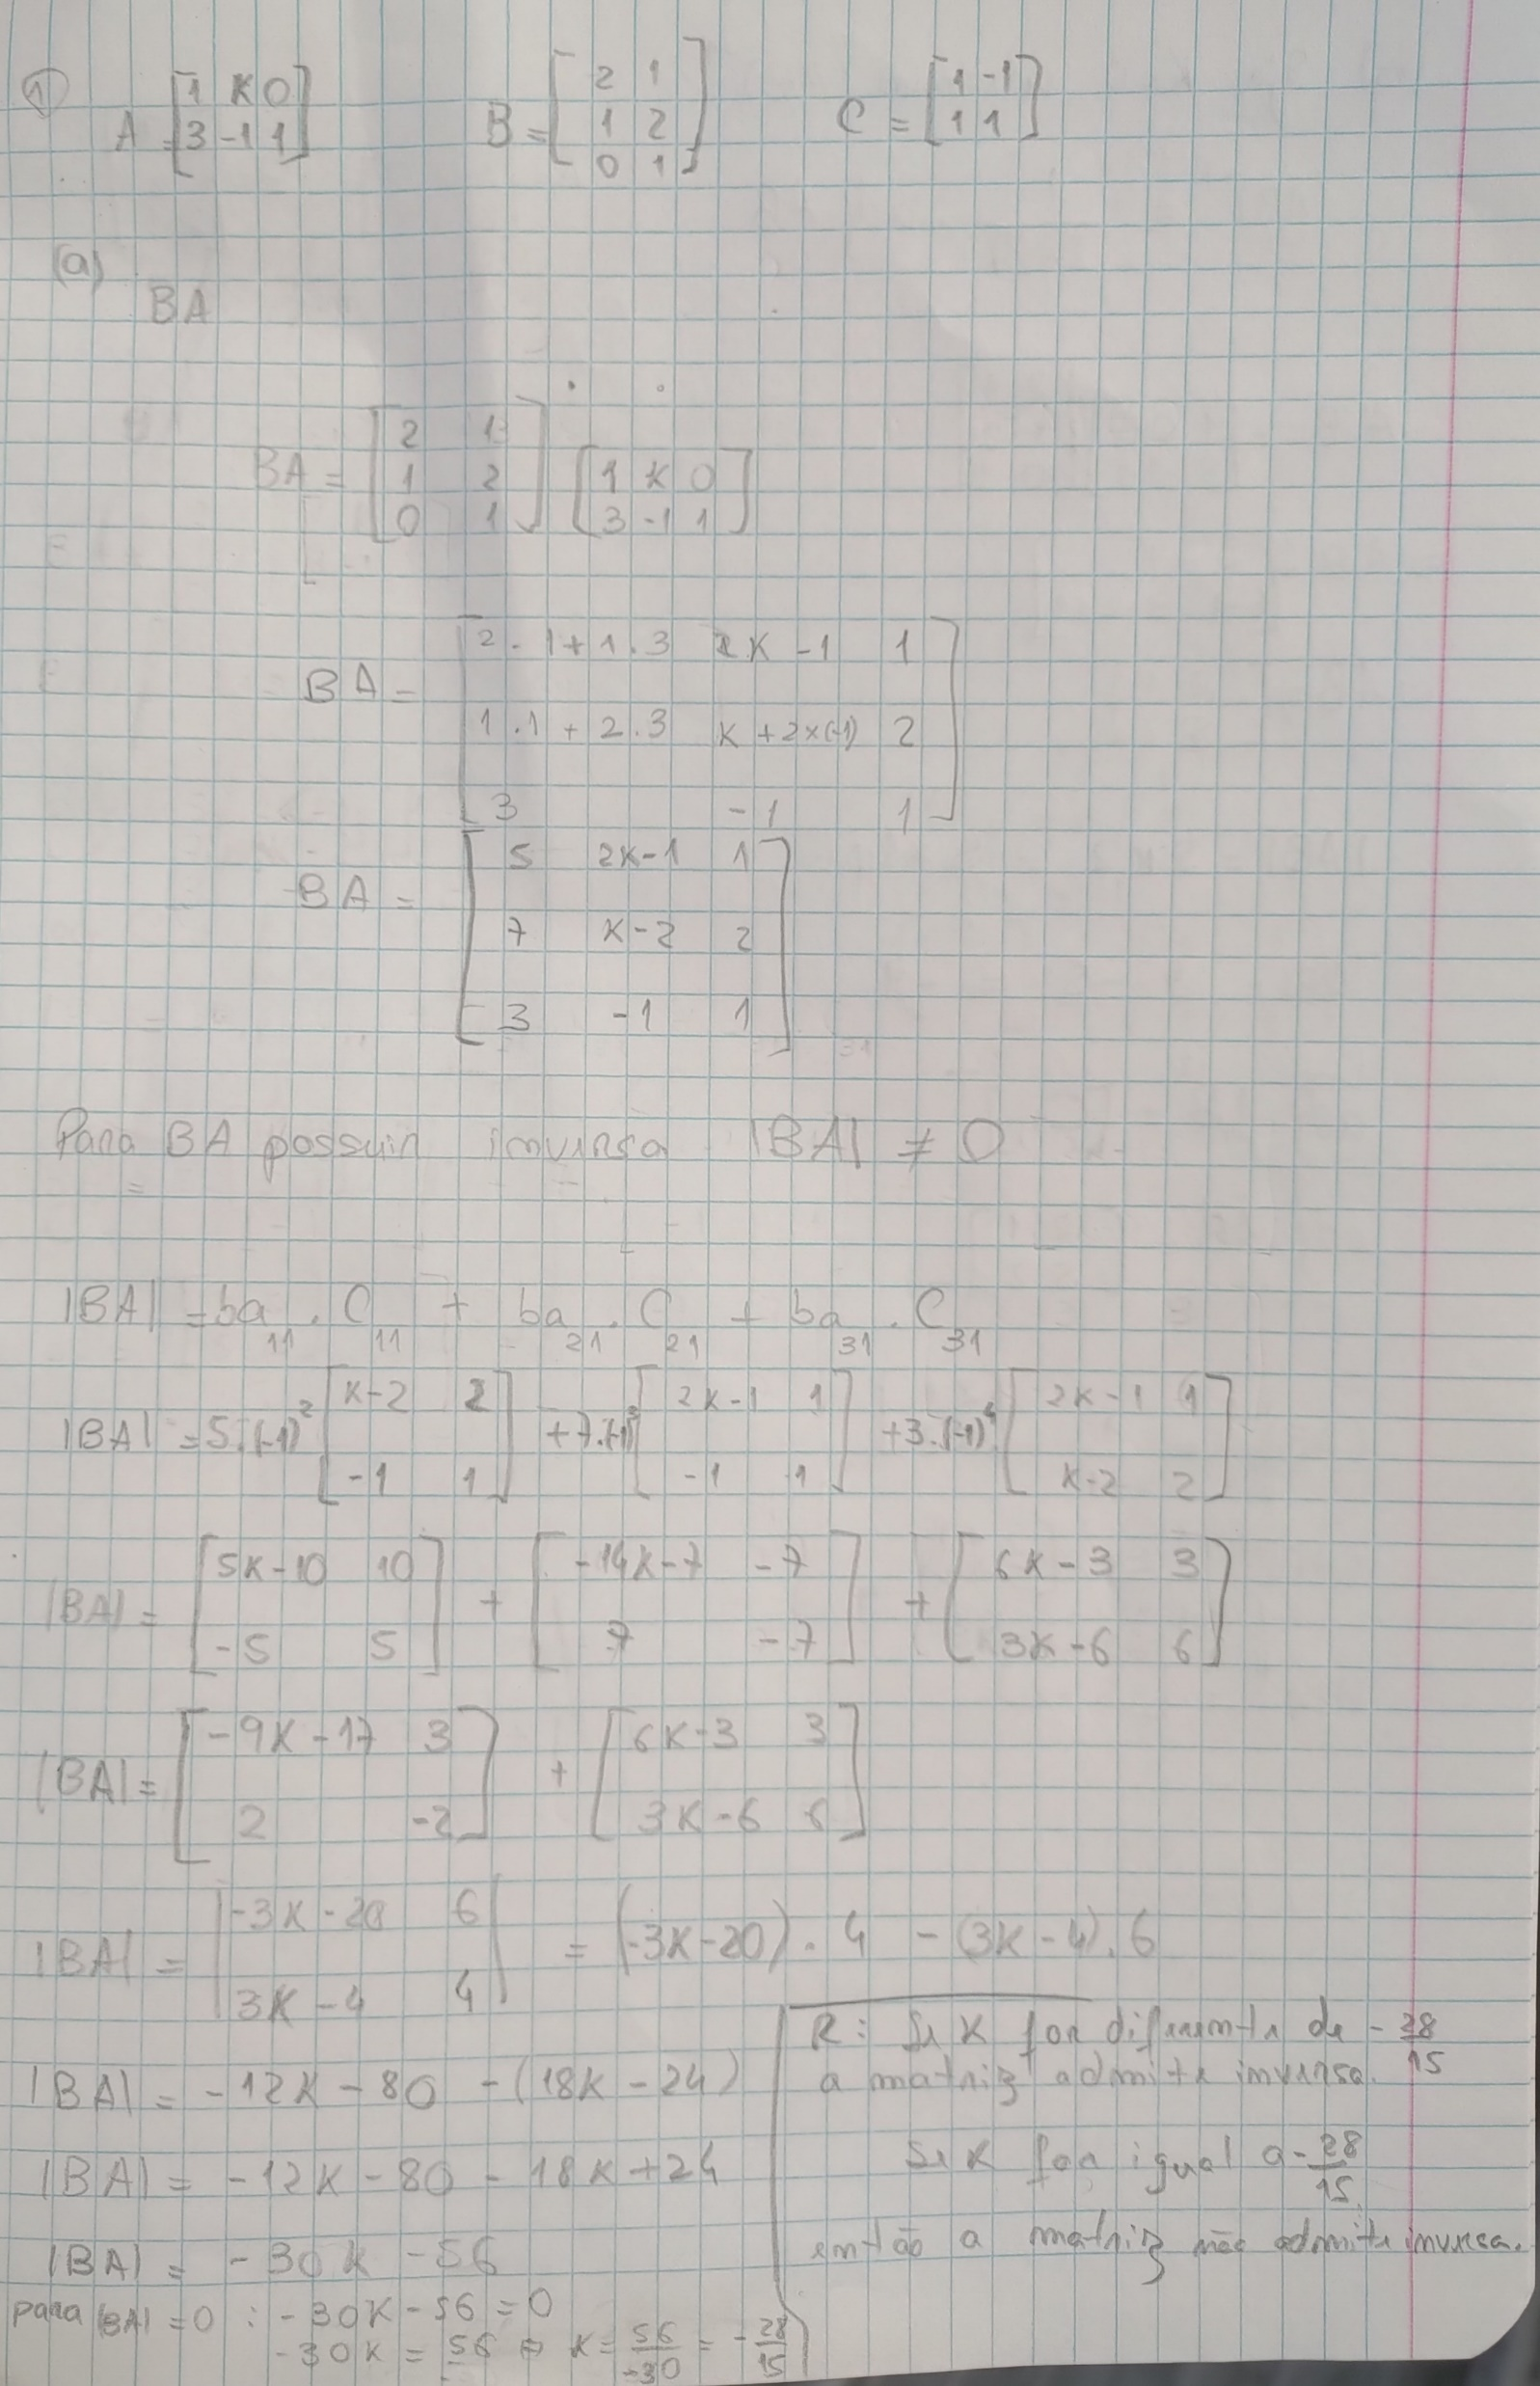 ① A = [1 K 0; 3 -1 1]   B = [2 1; 1 2; 0 1]   C = [1 -1; 1 1]
(a)
BA
BA = [2 1; 1 2; 0 1] [1 K 0; 3 -1 1]
BA = [2 . 1 + 1 . 3   2K - 1   1; 1 . 1 + 2 . 3   K + 2x(-1)   2; 3   -1   1]
BA = [5   2K-1   1; 7   K-2   2; 3   -1   1]
Para BA possuir inversa |BA| ≠ 0
|BA| = ba₁₁ . C₁₁ + ba₂₁ . C₂₁ + ba₃₁ . C₃₁
|BA| = 5.(-1)² [K-2   2; -1   1] + 7.(-1)³ [2K-1   1; -1   1] + 3.(-1)⁴ [2K-1   1; K-2   2]
|BA| = [5K-10   10; -5   5] + [-14K-7   -7; 7   -7] + [6K-3   3; 3K-6   6]
|BA| = [-9K-17   3; 2   -2] + [6K-3   3; 3K-6   6]
|BA| = |-3K-20   6; 3K-4   4| = (-3K-20) . 4 - (3K-4) . 6
|BA| = -12K - 80 - (18K - 24)
|BA| = -12K - 80 - 18K + 24
|BA| = -30K - 56
para |BA| = 0 : -30K - 56 = 0
-30K = 56 = K = 56/-30 = -28/15
R: Se K for diferente de -28/15
a matriz admite inversa.
Se K for igual a -28/15
então a matriz não admite inversa.